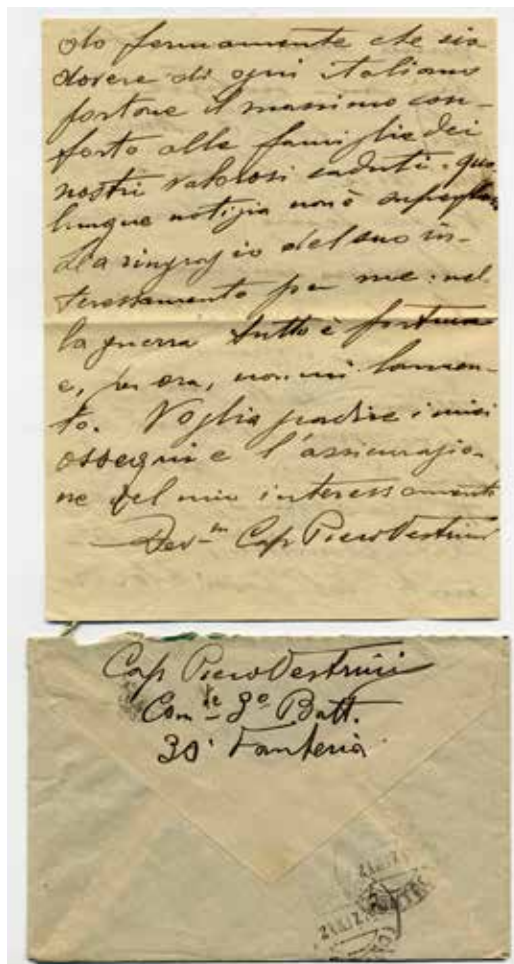 do fermamente che sia
dovere di ogni italiano
portare il massimo con-
forto alle famiglie dei
nostri valorosi caduti. qua
lunque notizia non è
La ringrazio del suo in-
teressamento per me: nel
la guerra tutto è fortuna
e, per ora, non mi lamen-
to. Voglia gradire i miei
ossequi e l'assicurazio-
ne del mio interessamento
Dev-mo Cap Piero Vestrini
Cap Piero Vestrini
Com-te 3º Batt.
30' Fanteria